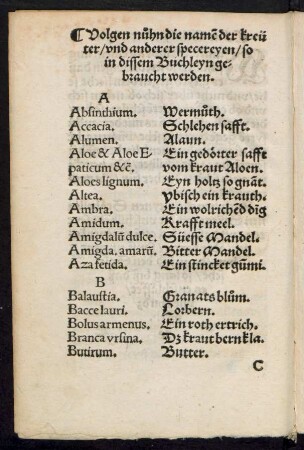 ¶ Volgen nůhn die namẽ der kreü
ter/vnd anderer specereyen/so
in dissem Buchleyn ge-
braucht werden.
A
Absinthium. Wermůth.
Accacia. Schlehen safft.
Alumen. Alaun.
Aloe & Aloe E- Ein gedörter safft
paticum &c̃. vom kraut Aloen.
Aloes lignum. Eyn holtz so gnãt.
Altea. ybisch ein krauth.
Ambra. Ein wolrichẽd dig
Amidum. Krafft meel.
Amigdalũ dulce. Süesse Mandel.
Amigda. amarũ. Bitter Mandel.
Aza fetida. Ein stincket gũmi.
B
Balaustia. Granats blům.
Bacce lauri. Lorbern.
Bolus armenus. Ein roth ertrich.
Branca vrsina. Dz kraut bern kla.
Butirum. Butter.
C